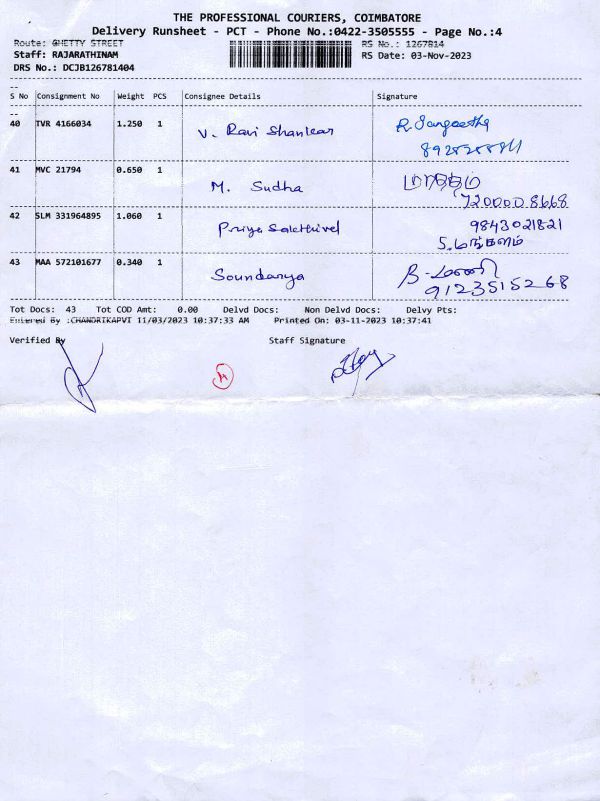 THE PROFESSIONAL COURIERS, COIMBATORE
Delivery Runsheet - PCT - Phone No.:0422-3505555 - Page No.:4
Route: GHETTY STREET RS No.: 1267814
Staff: RAJARATHINAM RS Date: 03-Nov-2023
DRS No.: DCJB126781404
S No Consignment No Weight PCS Consignee Details Signature
40 TVR 4166034 1.250 1 V. Ravi Shankar R. Sangeetha
41 MVC 21794 0.650 1 M. Sudha
7200008668
42 SLM 331964895 1.060 1 Priya Sakthivel 9843021821
S. மங்களம்
43 MAA 572101677 0.340 1 Soundarya B. மணி
9123515268
Tot Docs: 43 Tot COD Amt: 0.00 Delvd Docs: Non Delvd Docs: Delvy Pts:
Entered By :CHANDRIKAPVT 11/03/2023 10:37:33 AM Printed On: 03-11-2023 10:37:41
Verified By Staff Signature